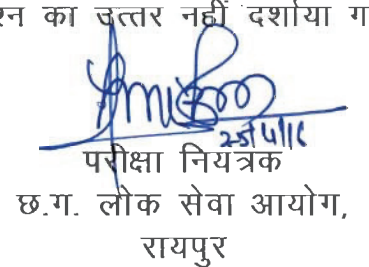 का उत्तर नहीं दर्शाया
25/4/16
परीक्षा नियंत्रक
छ.ग. लोक सेवा आयोग,
रायपुर